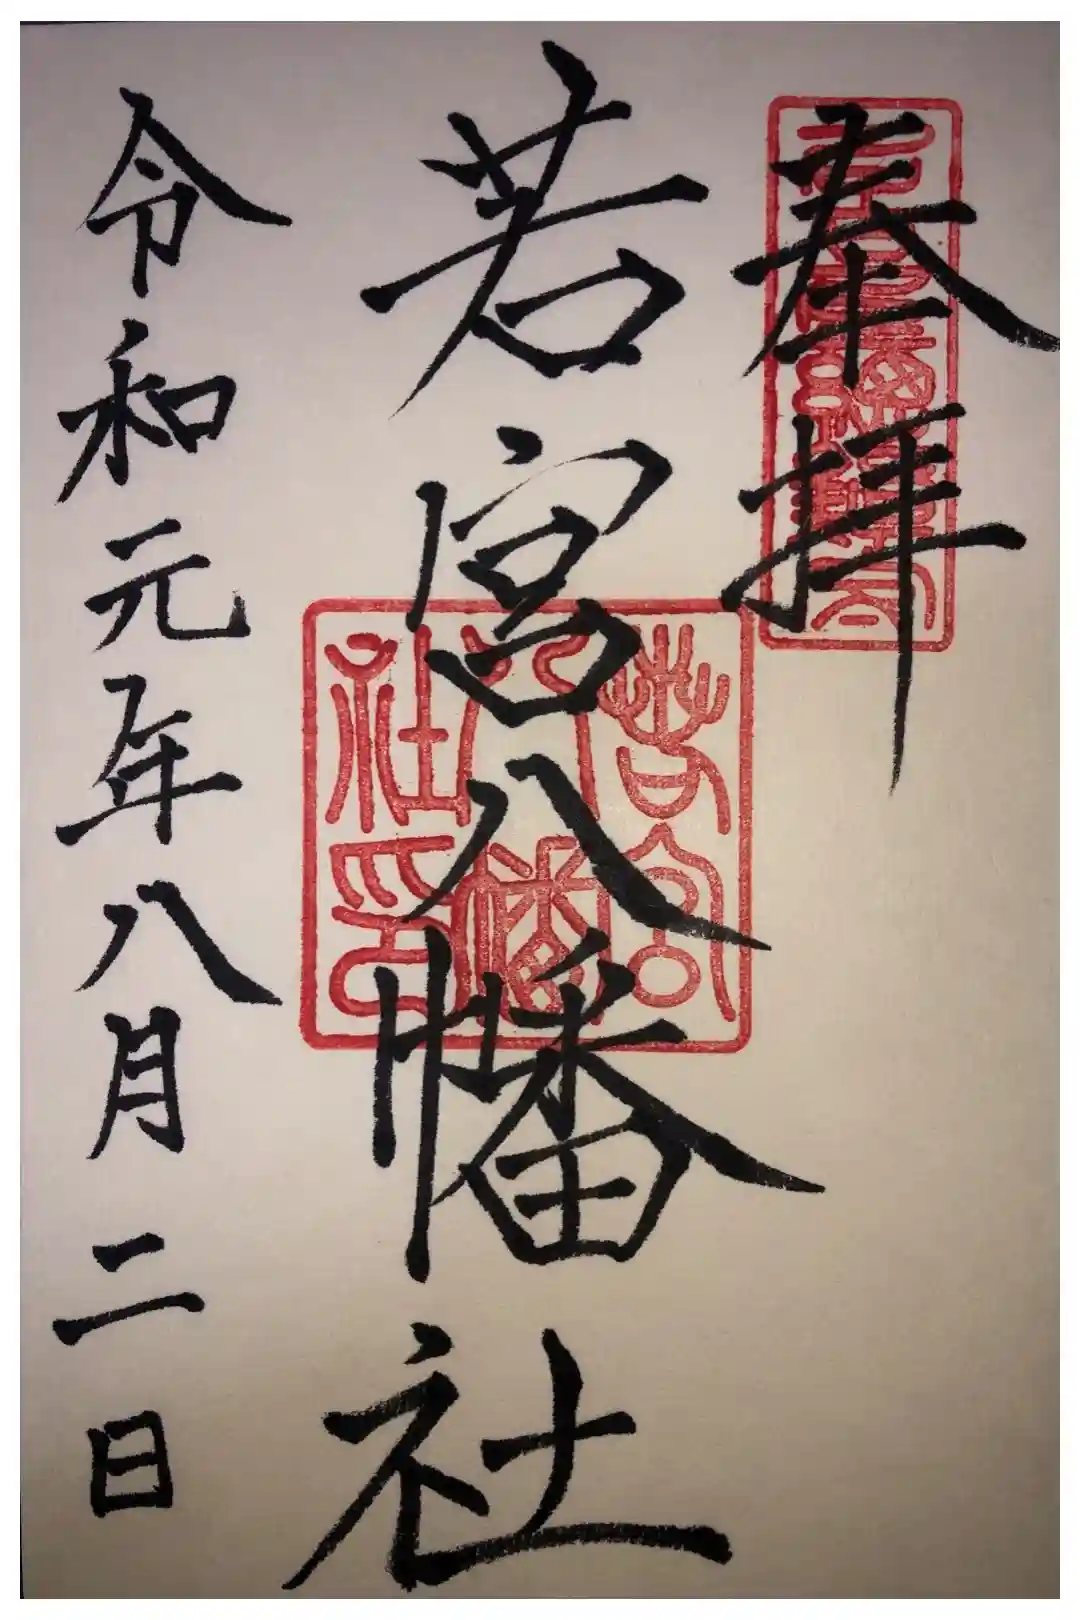 奉拝
若宮八幡社
若宮八幡社印
令和元年八月二日